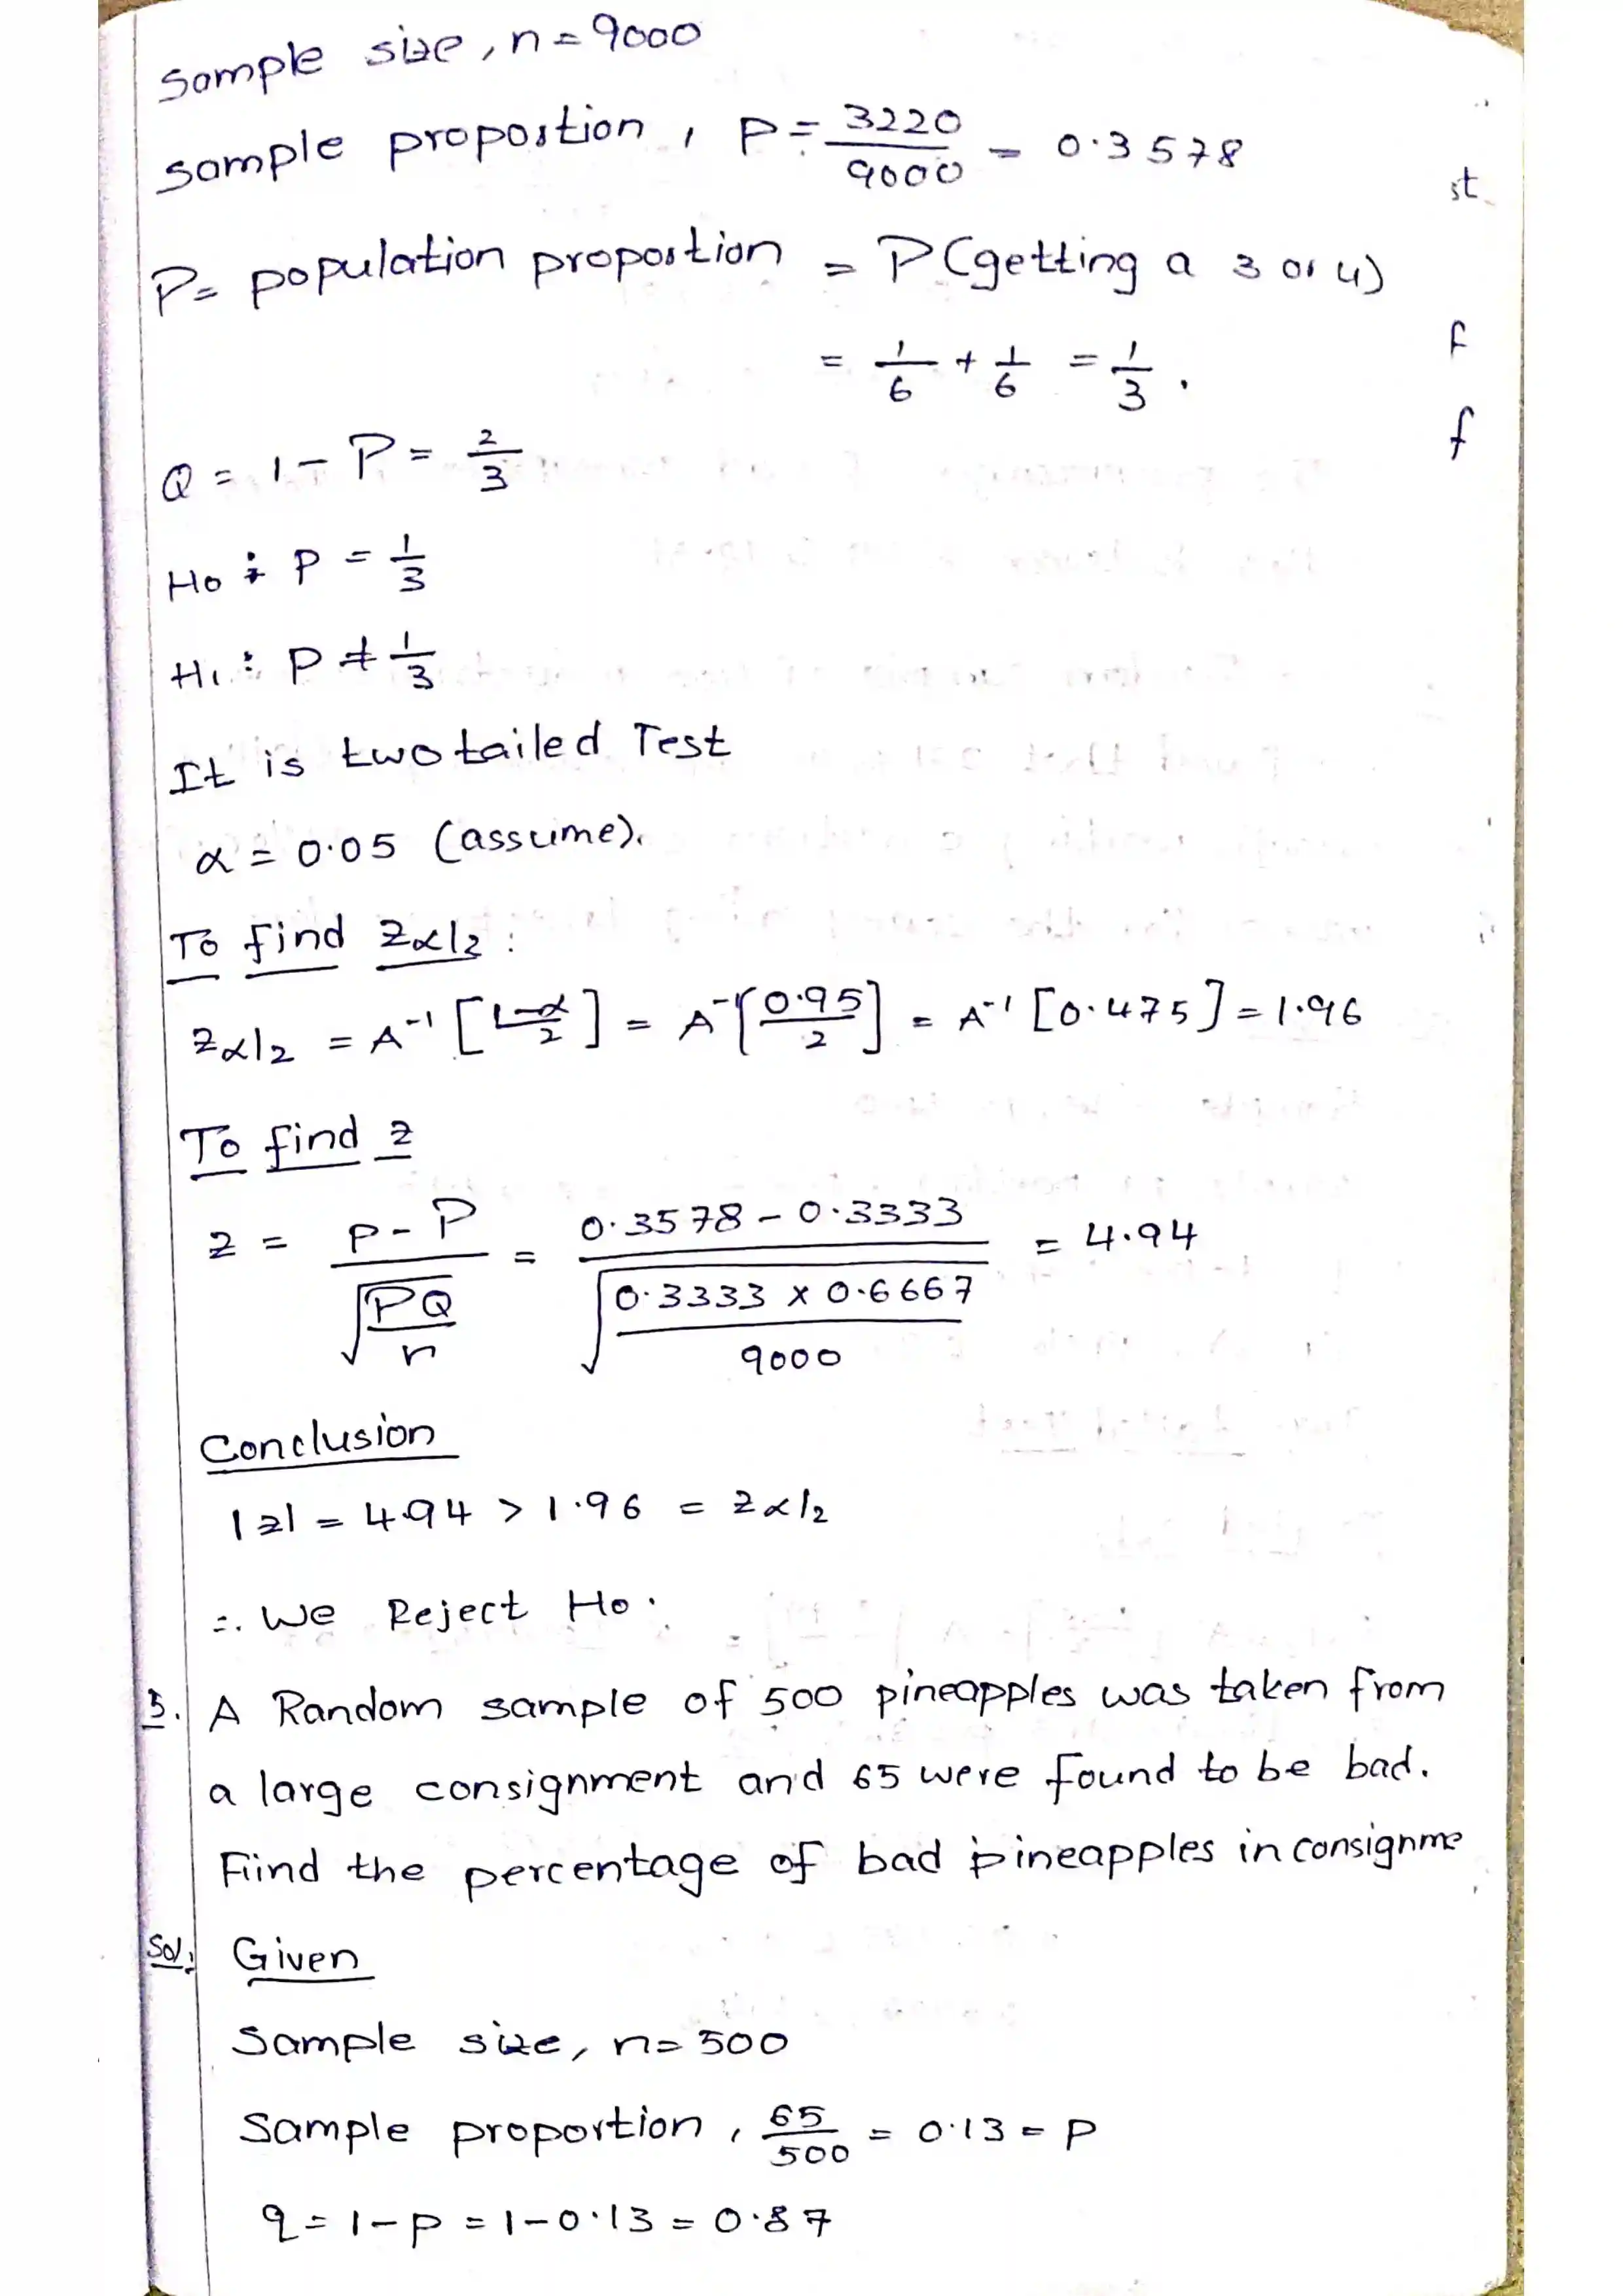 Sample size, n = 9000
sample proportion, p = 3220/9000 = 0.3578
st
P = population proportion = P(getting a 3 or 4)
= 1/6 + 1/6 = 1/3.
f
f
Q = 1 - P = 2/3
H0 : P = 1/3
H1 : P ≠ 1/3
It is two tailed Test
α = 0.05 (assume).
To find zα/2 :
zα/2 = A⁻¹ [1-α/2] = A⁻¹[0.95/2] = A⁻¹ [0.475] = 1.96
To find z
z = (p - P)/√(PQ/n) = (0.3578 - 0.3333)/√(0.3333 × 0.6667/9000) = 4.94
Conclusion
|z| = 4.94 > 1.96 = zα/2
∴ We Reject H0.
3. A Random sample of 500 pineapples was taken from
a large consignment and 65 were found to be bad.
Fiind the percentage of bad pineapples in consignme
Sol: Given
Sample size, n = 500
Sample proportion, 65/500 = 0.13 = p
q = 1 - p = 1 - 0.13 = 0.87